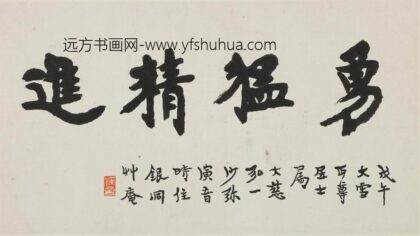 远方书画网-www.yfshuhua.com
勇猛精進
戊午
大雪
丏尊
居士
屬
大慈
弘一
沙弥
演音
時住
銀洞
艸庵